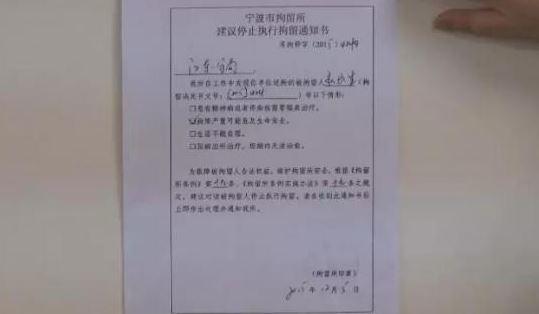 宁波市拘留所
建议停止执行拘留通知书
停字(2015)
江东分局
我所在工作中发现你单位送拘的被拘留人(拘
留决定书文号:)有以下情形:
□患有精神病或者传染病需要隔离治疗。
☑病情严重可能危及生命安全。
□生活不能自理。
□因病出所治疗,短期内无法治愈。
为保障被拘留人合法权益,维护拘留所安全,根据《拘留
所条例》第十九条、《拘留所条例实施办法》第条之规
定,建议对该被拘留人停止执行拘留。请在收到此通知书后
立即作出处理并通知我所。
(拘留所印章)
2015年12月5日